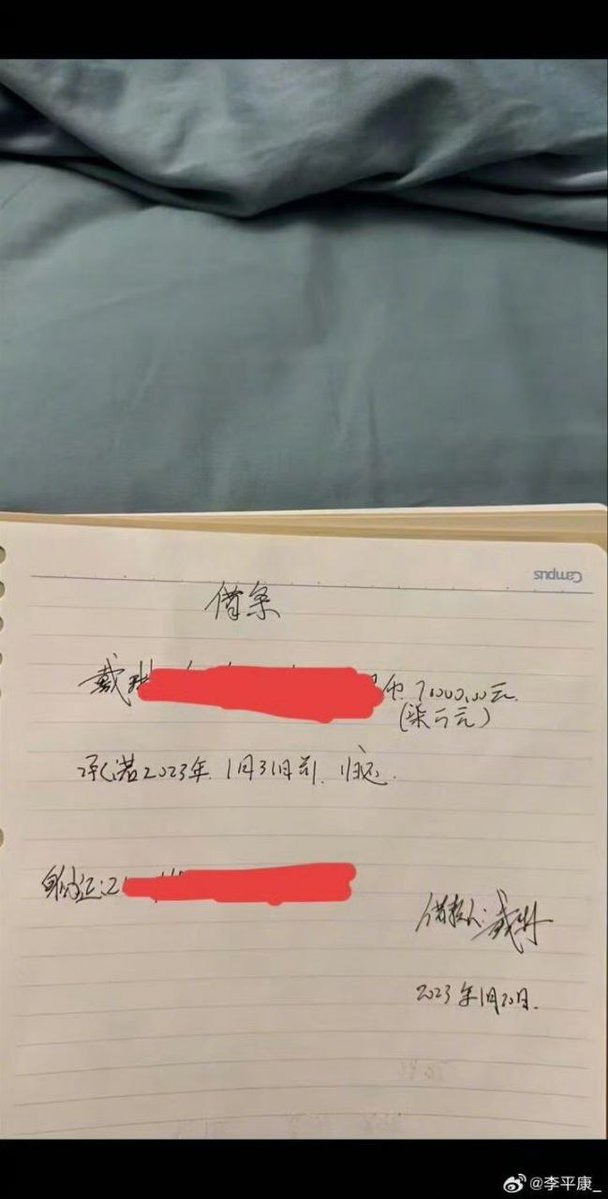 Campus
借条
戴 币. 7000.00元.
(柒仟元)
承诺2023年.1月31日前.归还.
身份证:2
借款人:戴琳
2023年1月20日.
@李平康_